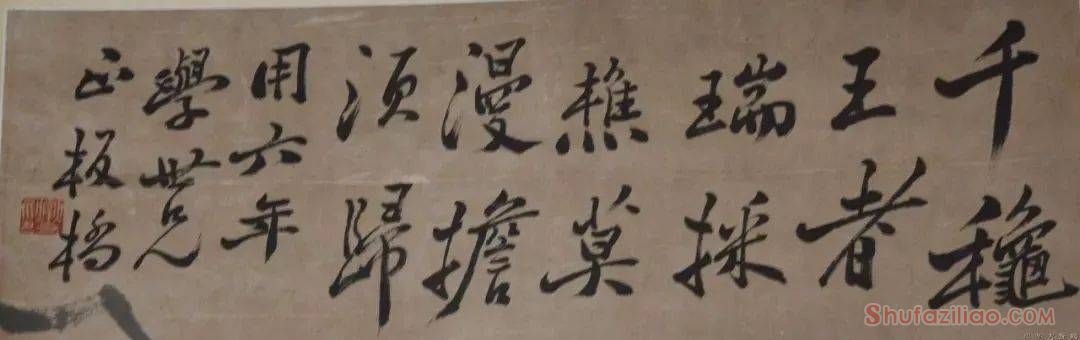 千穐
王者
瑞採
樵莫
漫擔
湏歸
用六年
學世兄
正板橋
Shufaziliao.com